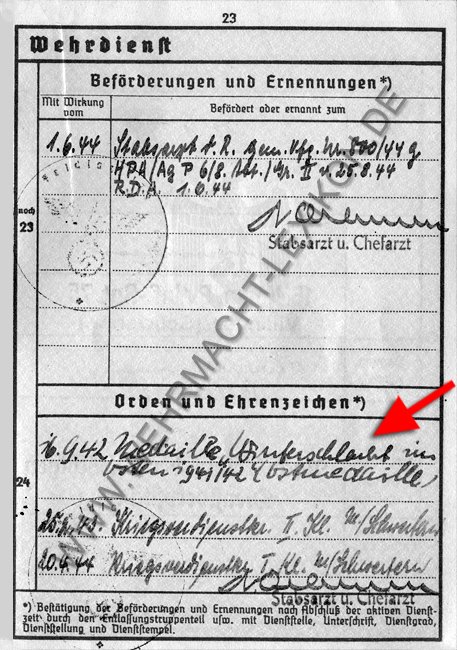 23
Wehrdienst
Beförderungen und Ernennungen*)
Mit Wirkung vom
Befördert oder ernannt zum
1.6.44 Stabsarzt d. R. gem. Vfg. Nr. 800/44 g.
HPA/Ag P 6/8. Abt./Gr. II v. 25.8.44
R.D.A. 1.6.44
Stabsarzt u. Chefarzt
noch
23
Orden und Ehrenzeichen*)
9.42 Medaille „Winterschlacht im
Osten 1941/42 (Ostmedaille)
24
Kriegsverdienstkr. II. Kl. m/Schwertern
20.4.44 Kriegsverdienstkr. I. Kl. m/Schwertern
Stabsarzt u. Chefarzt
*) Bestätigung der Beförderungen und Ernennungen nach Abschluß der aktiven Dienst-
zeit durch den Entlassungstruppenteil usw. mit Dienststelle, Unterschrift, Dienstgrad,
Dienststellung und Dienststempel.
WWW.WEHRMACHT-LEXIKON.DE